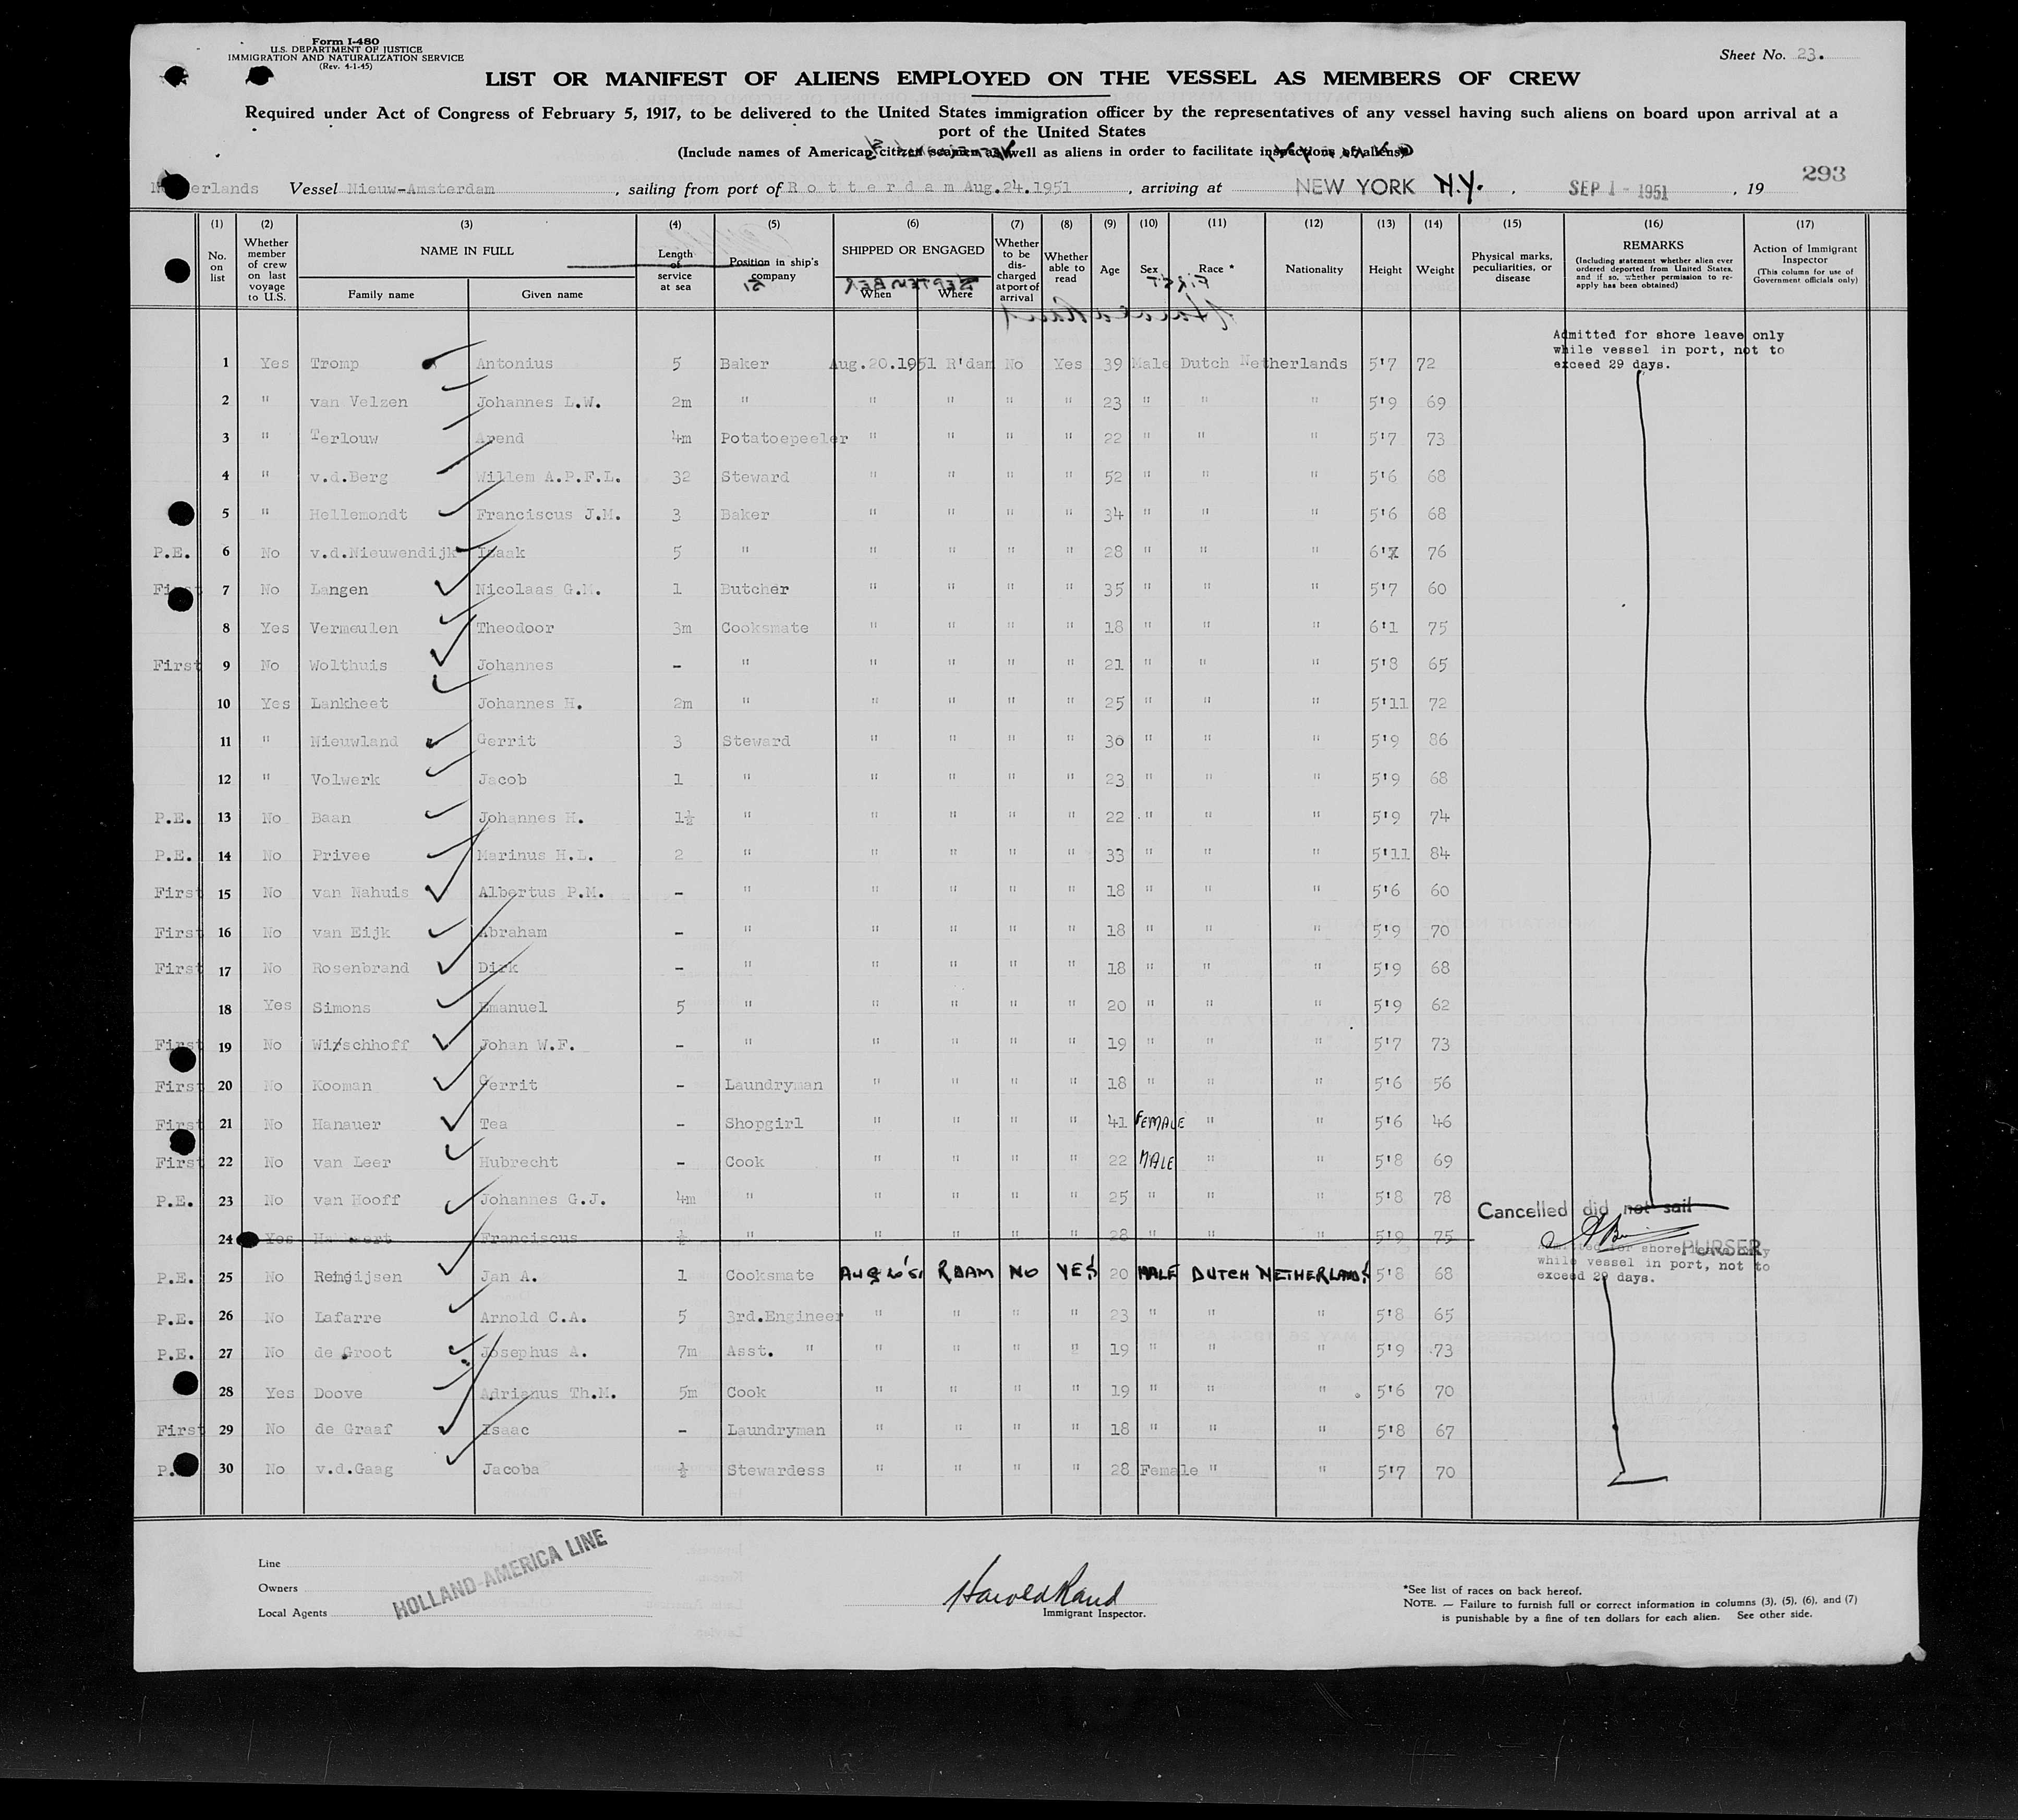 Form I-480
U.S. DEPARTMENT OF JUSTICE
IMMIGRATION AND NATURALIZATION SERVICE
(Rev. 4-1-45)
Sheet No. 23.
LIST OR MANIFEST OF ALIENS EMPLOYED ON THE VESSEL AS MEMBERS OF CREW
Required under Act of Congress of February 5, 1917, to be delivered to the United States immigration officer by the representatives of any vessel having such aliens on board upon arrival at a
port of the United States
(Include names of American citizen seamen as well as aliens in order to facilitate inspections of aliens)
293
Vessel Nieuw-Amsterdam, sailing from port of Rotterdam Aug.24.1951, arriving at NEW YORK N.Y., SEP 1 - 1951, 19
(1) (2) (3) (4) (5) (6) (7) (8) (9) (10) (11) (12) (13) (14) (15) (16) (17)
No. on list | Whether member of crew on last voyage to U.S. | NAME IN FULL Family name Given name | Length of service at sea | Position in ship's company | SHIPPED OR ENGAGED When Where | Whether to be discharged at port of arrival | Whether able to read | Age | Sex | Race * | Nationality | Height | Weight | Physical marks, peculiarities, or disease | REMARKS (Including statement whether alien ever ordered deported from United States, and if so, whether permission to re-apply has been obtained) | Action of Immigrant Inspector (This column for use of Government officials only)
Admitted for shore leave only
while vessel in port, not to
exceed 29 days.
1 Yes Tromp Antonius 5 Baker Aug.20.1951 R'dam No Yes 39 Male Dutch Netherlands 5'7 72
2 " van Velzen Johannes L.W. 2m " " " " " 23 " " " 5'9 69
3 " Terlouw Arend 4m Potatoepeeler " " " " 22 " " " 5'7 73
4 " v.d.Berg Willem A.P.F.L. 32 Steward " " " " 52 " " " 5'6 68
5 " Hellemondt Franciscus J.M. 3 Baker " " " " 34 " " " 5'6 68
P.E. 6 No v.d.Nieuwendijk Isaak 5 " " " " " 28 " " " 6' 76
First 7 No Langen Nicolaas G.M. 1 Butcher " " " " 35 " " " 5'7 60
8 Yes Vermeulen Theodoor 3m Cooksmate " " " " 18 " " " 6'1 75
First 9 No Wolthuis Johannes - " " " " " 21 " " " 5'8 65
10 Yes Lankheet Johannes H. 2m " " " " " 25 " " " 5'11 72
11 " Nieuwland Gerrit 3 Steward " " " " 30 " " " 5'9 86
12 " Volwerk Jacob 1 " " " " " 23 " " " 5'9 68
P.E. 13 No Baan Johannes H. 1½ " " " " " 22 " " " 5'9 74
P.E. 14 No Privee Marinus H.L. 2 " " " " " 33 " " " 5'11 84
First 15 No van Nahuis Albertus P.M. - " " " " " 18 " " " 5'6 60
First 16 No van Eijk Abraham - " " " " " 18 " " " 5'9 70
First 17 No Rosenbrand Dirk - " " " " " 18 " " " 5'9 68
18 Yes Simons Emanuel 5 " " " " " 20 " " " 5'9 62
First 19 No Wirschhoff Johan W.F. - " " " " " 19 " " " 5'7 73
First 20 No Kooman Gerrit - Laundryman " " " " 18 " " " 5'6 56
First 21 No Hanauer Tea - Shopgirl " " " " 41 FEMALE " " 5'6 46
First 22 No van Leer Hubrecht - Cook " " " " 22 MALE " " 5'8 69
P.E. 23 No van Hooff Johannes G.J. 4m " " " " " 25 " " " 5'8 78
Cancelled did not sail
24 Yes Franciscus ½ " " " " " 28 " " " 5'9 75
PURSER
Admitted for shore leave only
while vessel in port, not to
exceed 29 days.
P.E. 25 No Jan A. 1 Cooksmate AUG 20'51 RDAM NO YES 20 MALE DUTCH NETHERLANDS 5'8 68
P.E. 26 No Lafarre Arnold C.A. 5 3rd.Engineer " " " " 23 " " " 5'8 65
P.E. 27 No de Groot Josephus A. 7m Asst. " " " " " 19 " " " 5'9 73
28 Yes Doove Adrianus Th.M. 5m Cook " " " " 19 " " " 5'6 70
First 29 No de Graaf Isaac - Laundryman " " " " 18 " " " 5'8 67
P.E. 30 No v.d.Gaag Jacoba ½ Stewardess " " " " 28 Female " " 5'7 70
Line
Owners
Local Agents
HOLLAND-AMERICA LINE
Harold Rand
Immigrant Inspector.
*See list of races on back hereof.
NOTE. — Failure to furnish full or correct information in columns (3), (5), (6), and (7)
is punishable by a fine of ten dollars for each alien. See other side.